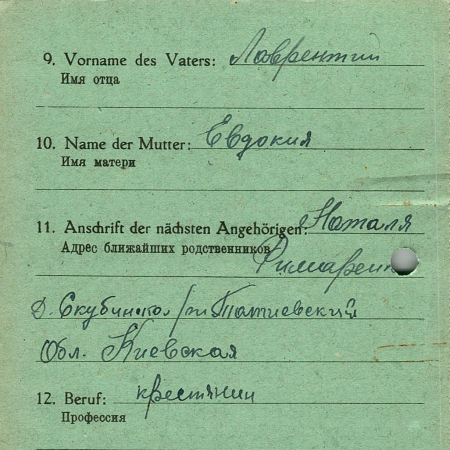 9. Vorname des Vaters: Лаврентий
Имя отца
10. Name der Mutter: Евдокия
Имя матери
11. Anschrift der nächsten Angehörigen: Наталя
Адрес ближайших родственников
Обл. Киевская
12. Beruf: крестянин
Профессия